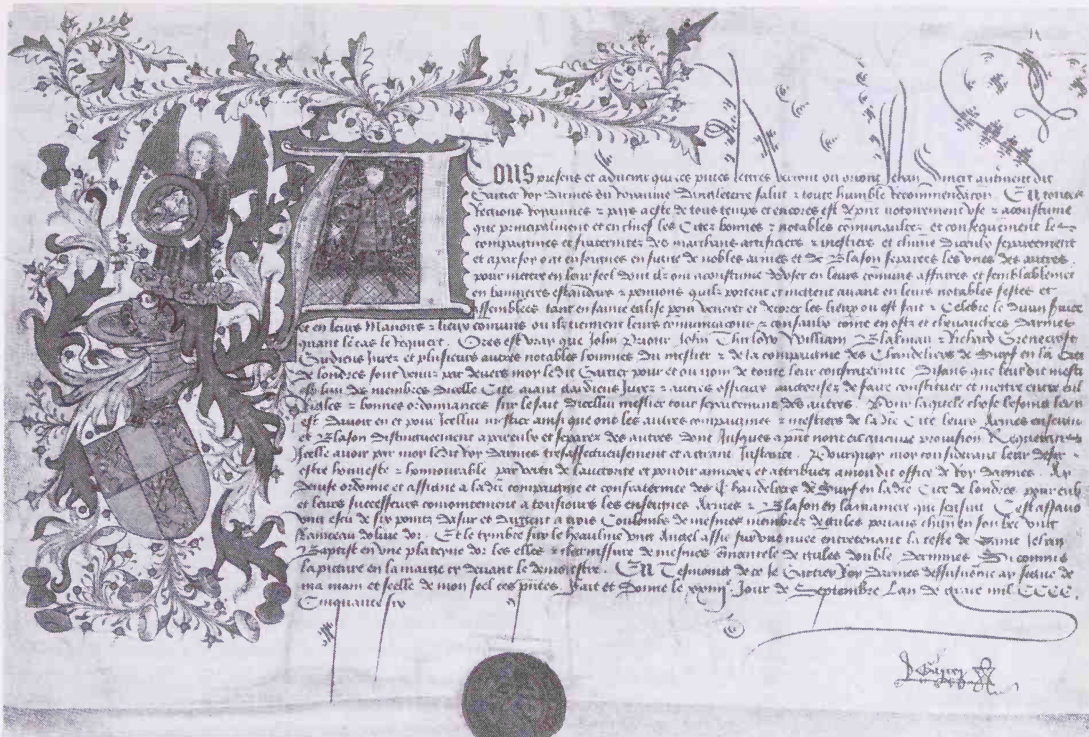 A Tous presens et advenir qui ces presentes lettres verront ou orront Jehan Smert autrement dit
Gartier Roy darmes du Royaume Dangleterre salut et toute humble Recommendacion. En toutes
Regions Royaumes et pays a este de tous temps et encores est de present notoirement use et acoustume
que principalment et en chief les Citez bonnes et notables communaultez et consequement les
compaignies et fraternitez des marchans artificiers et mestiers et chacune dicculx separeement
et apar soy ont enseignes en fourme de nobles armes et de Blason separees les unes des autres
pour mettre en leur seel dont ilz ont acoustume duser en leurs communs affaires et semblablement
en bannieres estandars et penons quilz portent et mettent avant en leurs notables festes et
assemblees tant en sainte eglise pour venerer et decorer les lieux ou est fait et Celebre le divin service
et en leurs Manoirs et lieux communs ou ilz tiennent leurs communicacions et consaulx comme en ostz et chevauchees Darmes
quant le cas le requiert. Ores est vray que John Priour John Thurlow William Blakman et Richard Grenecroft
Gardiens Jurez et plusieurs autres notables hommes du mestier et de la compaignie des Chandeliers de Suyf en la Cite
de londres sont venuz par devers moy ledit Gartier pour et ou nom de toute leur confraternite Disans que leur dit mestier
est lun de membres dicelle Cite ayant Gardiens Jurez et autres officiers auctorisez de faire constituer et mettre entre eulx
Reales et bonnes ordonnances sur le fait dicellui mestier tout separeement des autres. Pour laquelle chose besoing leur
est Davoir en et pour Icellui mestier ainsi que ont les autres compaignies et mestiers de la dite Cite leurs Armes enseignes
et Blason distinguement a par eulx et separez des autres dont Jusques a present nont eu aucune provision Requerans
Icelle avoir par moy ledit Roy darmes tresaffectueusement et a grant Instance. Pourquoy moy considerant leur desir
estre honneste et honnourable par vertu de lauctorite et povoir annexez et attribuez a mondit office de Roy darmes Ay
devise ordonne et assigne a la dite compaignie et confraternite des Chandelers de Suyf en la dite Cite de londres pour eulx
et leurs successeurs conjointement a tousjours les enseignes Armes et Blason en la maniere qui sensuit Cest assavoir
ung escu de six pointz Dasur et Dargent a trois Coulombs de mesmes membrez de gules portans chacun en son bec ung
Rainceau dolive dor. Et le tymbre sur le heaulme ung Angel assis sur une nuee entretenant la teste de Saint Jehan
Baptist en une plateyne dor les elles et chevissure de mesmes emantele de gules double Dermines Si comme
la picture en la marge cy devant le demonstre. En Tesmoing de ce Je Gartier Roy Darmes dessusnomme ay signe de
ma main et seelle de mon seel ces presentes Fait et Donne le xxiiij. Jour de Septembre Lan de grace mil CCCC.
Cinquante six
Gartier